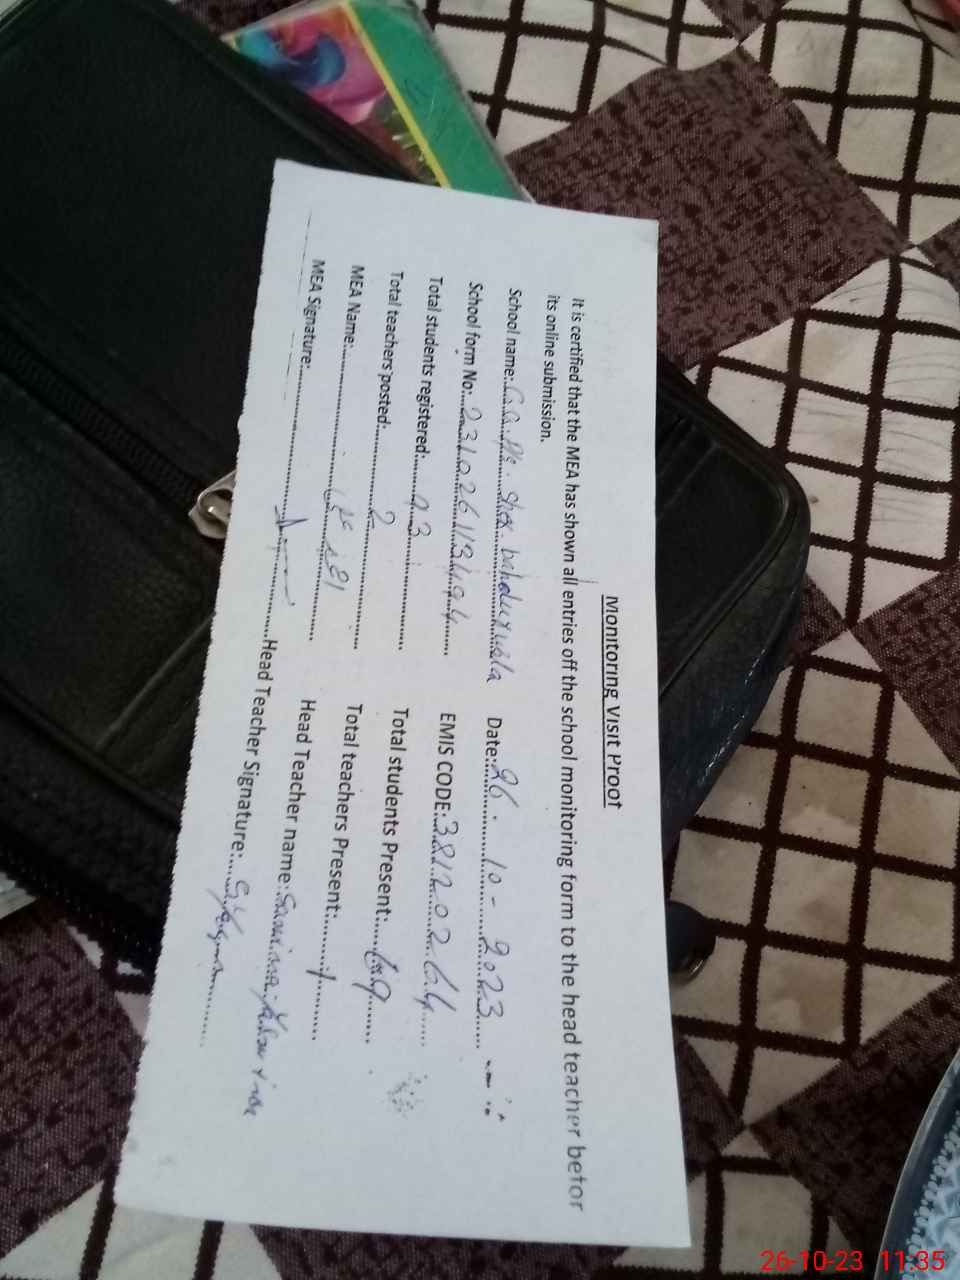 Monitoring Visit Proof
It is certified that the MEA has shown all entries off the school monitoring form to the head teacher befor
its online submission.
School name: G.G.P/S. Sher bahadur Date: 26-10-2023
School form No: 231026113494 EMIS CODE: 38120264
Total students registered: 93 Total students Present: 69
Total teachers posted: 2 Total teachers Present: 1
MEA Name: Head Teacher name:
MEA Signature: Head Teacher Signature:
26-10-23 11:35